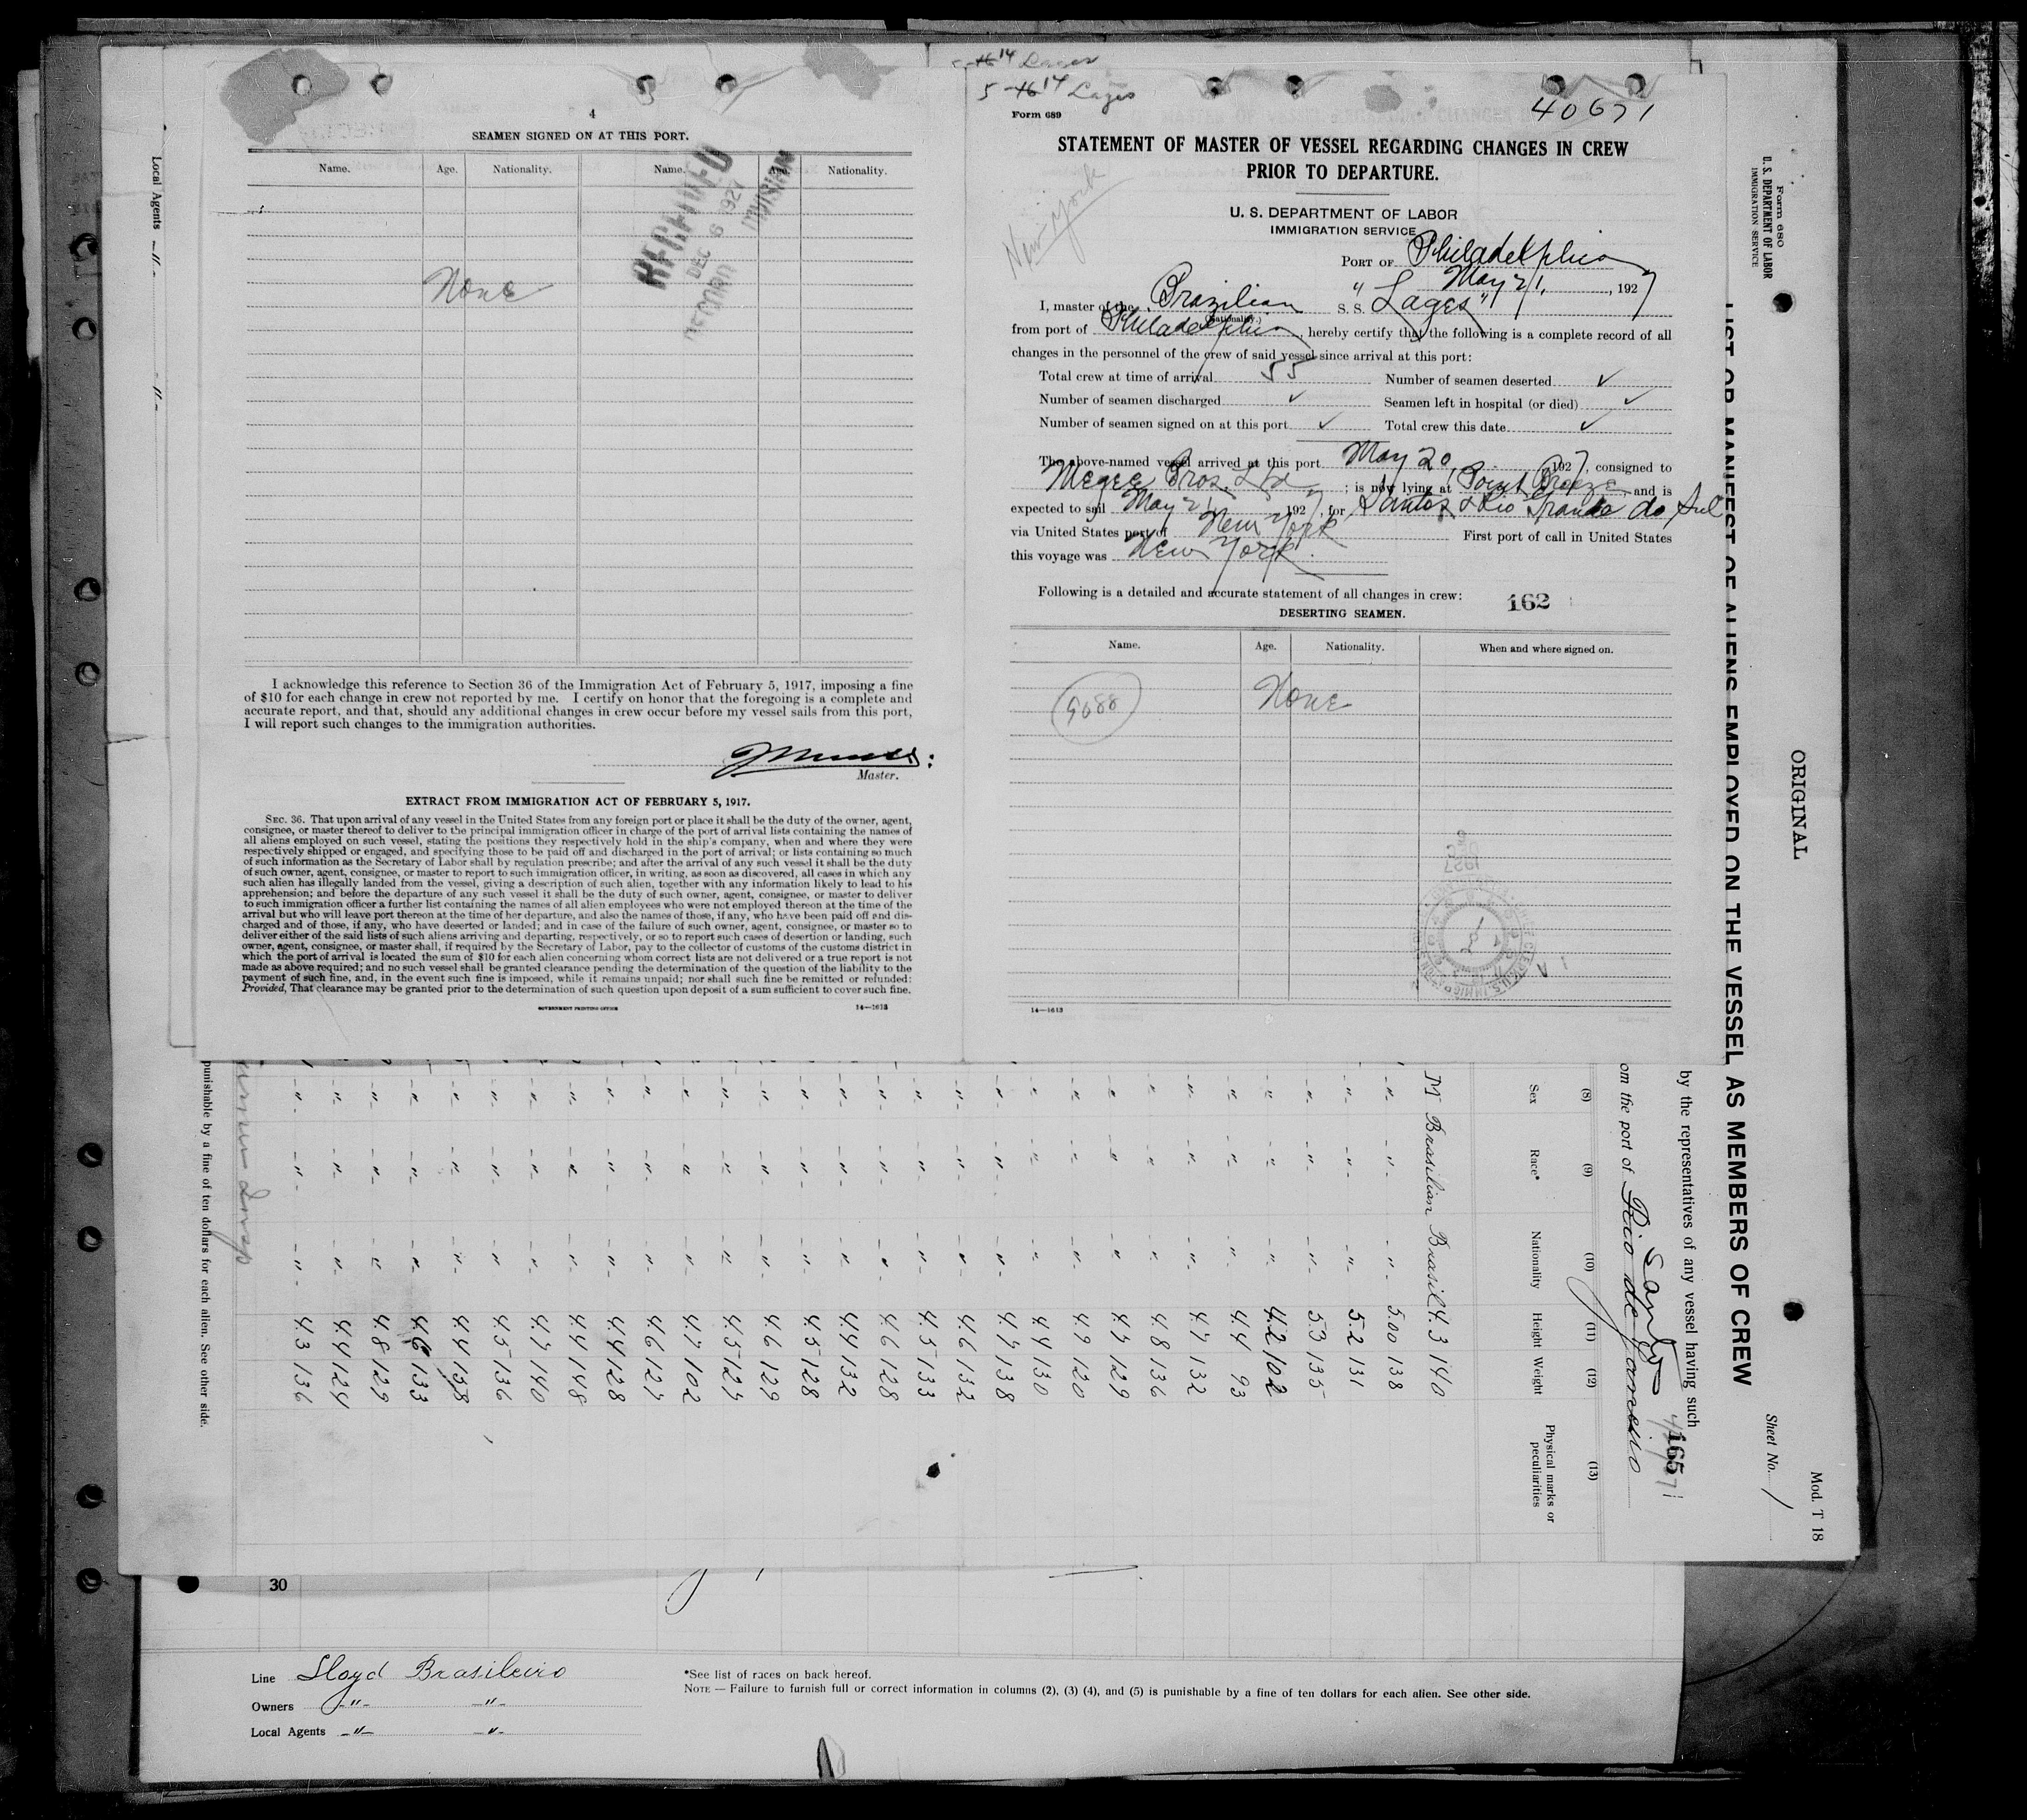 5 16 14 Lages
5 16 14 Lages
4
SEAMEN SIGNED ON AT THIS PORT.
Name. Age. Nationality. Name. Age. Nationality.
RECEIVED
DEC 6 1927
RECORD DIVISION
None
I acknowledge this reference to Section 36 of the Immigration Act of February 5, 1917, imposing a fine
of $10 for each change in crew not reported by me. I certify on honor that the foregoing is a complete and
accurate report, and that, should any additional changes in crew occur before my vessel sails from this port,
I will report such changes to the immigration authorities.
Master.
EXTRACT FROM IMMIGRATION ACT OF FEBRUARY 5, 1917.
SEC. 36. That upon arrival of any vessel in the United States from any foreign port or place it shall be the duty of the owner, agent,
consignee, or master thereof to deliver to the principal immigration officer in charge of the port of arrival lists containing the names of
all aliens employed on such vessel, stating the positions they respectively hold in the ship's company, when and where they were
respectively shipped or engaged, and specifying those to be paid off and discharged in the port of arrival; or lists containing so much
of such information as the Secretary of Labor shall by regulation prescribe; and after the arrival of any such vessel it shall be the duty
of such owner, agent, consignee, or master to report to such immigration officer, in writing, as soon as discovered, all cases in which any
such alien has illegally landed from the vessel, giving a description of such alien, together with any information likely to lead to his
apprehension; and before the departure of any such vessel it shall be the duty of such owner, agent, consignee, or master to deliver
to such immigration officer a further list containing the names of all alien employees who were not employed thereon at the time of the
arrival but who will leave port thereon at the time of her departure, and also the names of those, if any, who have been paid off and dis-
charged and of those, if any, who have deserted or landed; and in case of the failure of such owner, agent, consignee, or master so to
deliver either of the said lists of such aliens arriving and departing, respectively, or so to report such cases of desertion or landing, such
owner, agent, consignee, or master shall, if required by the Secretary of Labor, pay to the collector of customs of the customs district in
which the port of arrival is located the sum of $10 for each alien concerning whom correct lists are not delivered or a true report is not
made as above required; and no such vessel shall be granted clearance pending the determination of the question of the liability to the
payment of such fine, and, in the event such fine is imposed, while it remains unpaid; nor shall such fine be remitted or refunded:
Provided, That clearance may be granted prior to the determination of such question upon deposit of a sum sufficient to cover such fine.
GOVERNMENT PRINTING OFFICE 14—1613
Form 689
40671
STATEMENT OF MASTER OF VESSEL REGARDING CHANGES IN CREW
PRIOR TO DEPARTURE.
New York
U. S. DEPARTMENT OF LABOR
IMMIGRATION SERVICE
PORT OF Philadelphia
May 21, 1927
I, master of the Brazilian S. S. "Lages"
(Nationality.)
from port of Philadelphia, hereby certify that the following is a complete record of all
changes in the personnel of the crew of said vessel since arrival at this port:
Total crew at time of arrival 55 Number of seamen deserted ✓
Number of seamen discharged ✓ Seamen left in hospital (or died) ✓
Number of seamen signed on at this port ✓ Total crew this date ✓
The above-named vessel arrived at this port May 20, 1927, consigned to
Megee Bros. Ltd; is now lying at Point Breeze, and is
expected to sail May 21 1927, for Santos & Rio Grande do Sul
via United States port of New York First port of call in United States
this voyage was New York.
Following is a detailed and accurate statement of all changes in crew:
162
DESERTING SEAMEN.
Name. Age. Nationality. When and where signed on.
5088 None
DEC 6 1927
14—1613
Form 680
U. S. DEPARTMENT OF LABOR
IMMIGRATION SERVICE
ORIGINAL
Mod. T 18
Sheet No. 1
LIST OR MANIFEST OF ALIENS EMPLOYED ON THE VESSEL AS MEMBERS OF CREW
by the representatives of any vessel having such
165
Santos
om the port of Rio de Janeiro
(8) (9) (10) (11) (12) (13)
Sex Race* Nationality Height Weight Physical marks or peculiarities
M Brasilian Brasil 4.3 140
-"- -"- -"- 5.00 138
-"- -"- -"- 5.2 131
-"- -"- -"- 5.3 135
-"- -"- -"- 4.2 102
-"- -"- -"- 4.4 93
-"- -"- -"- 4.7 132
-"- -"- -"- 4.8 136
-"- -"- -"- 4.7 129
-"- -"- -"- 4.9 120
-"- -"- -"- 4.4 130
-"- -"- -"- 4.7 138
-"- -"- -"- 4.6 132
-"- -"- -"- 4.5 133
-"- -"- -"- 4.6 128
-"- -"- -"- 4.4 132
-"- -"- -"- 4.5 128
-"- -"- -"- 4.6 129
-"- -"- -"- 4.5 127
-"- -"- -"- 4.7 102
-"- -"- -"- 4.6 127
-"- -"- -"- 4.4 128
-"- -"- -"- 4.4 148
-"- -"- -"- 4.7 140
-"- -"- -"- 4.5 136
-"- -"- -"- 4.4 138
-"- -"- -"- 4.6 133
-"- -"- -"- 4.8 129
-"- -"- -"- 4.4 124
-"- -"- -"- 4.3 136
punishable by a fine of ten dollars for each alien. See other side.
Local Agents -"- -"-
30
Line Lloyd Brasileiro
Owners -"- -"-
Local Agents -"- -"-
*See list of races on back hereof.
NOTE — Failure to furnish full or correct information in columns (2), (3) (4), and (5) is punishable by a fine of ten dollars for each alien. See other side.